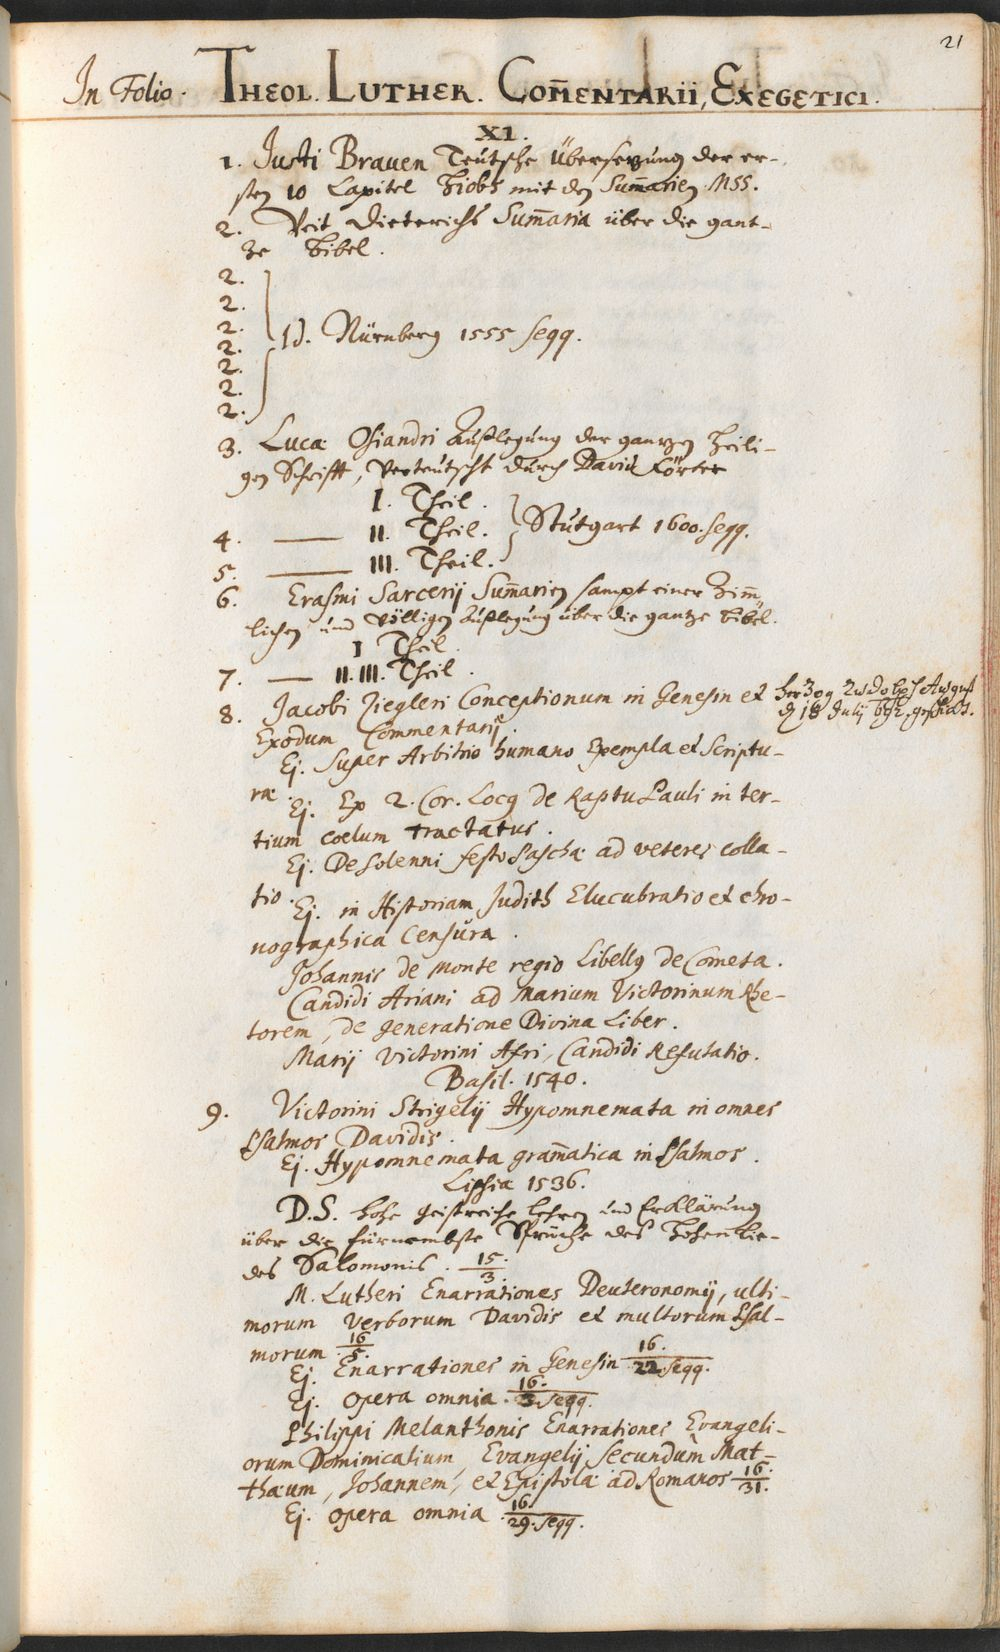 21
In Folio. THEOL. LUTHER. COM̄ENTARII, EXEGETICI.
XI.
1. Justi Braven Teutsche Übersetzung der er-
sten 10 Capitel Hiobs mit den Sum̄arien MSS.
2. Veit Dieterichs Sum̄aria über die gant-
ze Bibel.
2.
2.
2.
2. Id. Nürnberg 1555 seqq.
2.
2.
2.
3. Lucæ Osiandri Außlegung der gantzen Heili-
gen Schrifft, verteutscht durch David Förter
I. Theil.
4. —— II. Theil. Stutgart 1600. seqq.
5. —— III. Theil.
6. Erasmi Sarcerij Sum̄arien sampt einer Zim̄-
lichen und völligen Außlegung über die gantze Bibel.
I Theil
7. —— II. III. Theil.
8. Jacobi Ziegleri Conceptionum in Genesin et
Exodum Commentarij.
Herzog Rudolph August
d 18 Julij
Ej. Super Arbitrio humano Exempla et Scriptu-
ræ.
Ej. Ex 2. Cor. Locq de Raptu Pauli in ter-
tium coelum tractatus.
Ej. De Solenni festo Paschæ ad veteres colla-
tio.
Ej. in Historiam Judith Elucubratio et chro-
nographica Censura.
Johannis de Monte regio Libellq de Cometa.
Candidi Ariani ad Marium Victorinum Rhe-
torem, de generatione Divina Liber.
Marij Victorini Afri, Candidi Refutatio.
Basil. 1540.
9. Victorini Strigelij Hypomnemata in omnes
Psalmos Davidis.
Ej. Hypomnemata gram̄atica in Psalmos.
Lipsiæ 1536.
D.S. hohe geistreiche Lehren und Erklärung
über die fürnembste Sprüche des Hohen Lie-
des Salomonis. 15./3.
M. Lutheri Enarrationes Deuteronomij, ulti-
morum verborum Davidis et multorum Psal-
morum 16/5.
Ej. Enarrationes in Genesin 16./22. seqq.
Ej. Opera omnia. 16./3. seqq.
Philippi Melanthonis Enarrationes Evangeli-
orum Dominicalium, Evangelij secundum Mat-
thæum, Johannem, et Epistolæ ad Romanos 16./31.
Ej. Opera omnia 16./29. seqq.